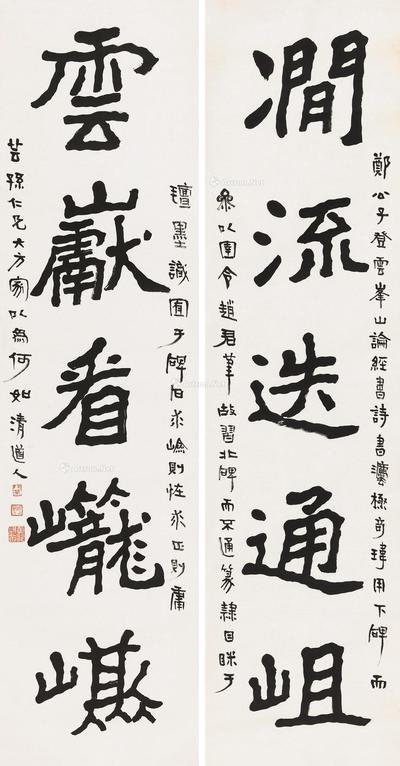 鄭公子登雲峯山論經書詩書灋極奇瑋用下碑而
澗流迭通岨
參以圉令趙君筆故習北碑而不通篆隸目眯于
壇墨識囿于碑石求嶮則怪求正則庸
雲巘看巃
芸孫仁兄大方家以為何如清道人